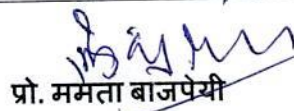 प्रो. ममता बाजपेयी